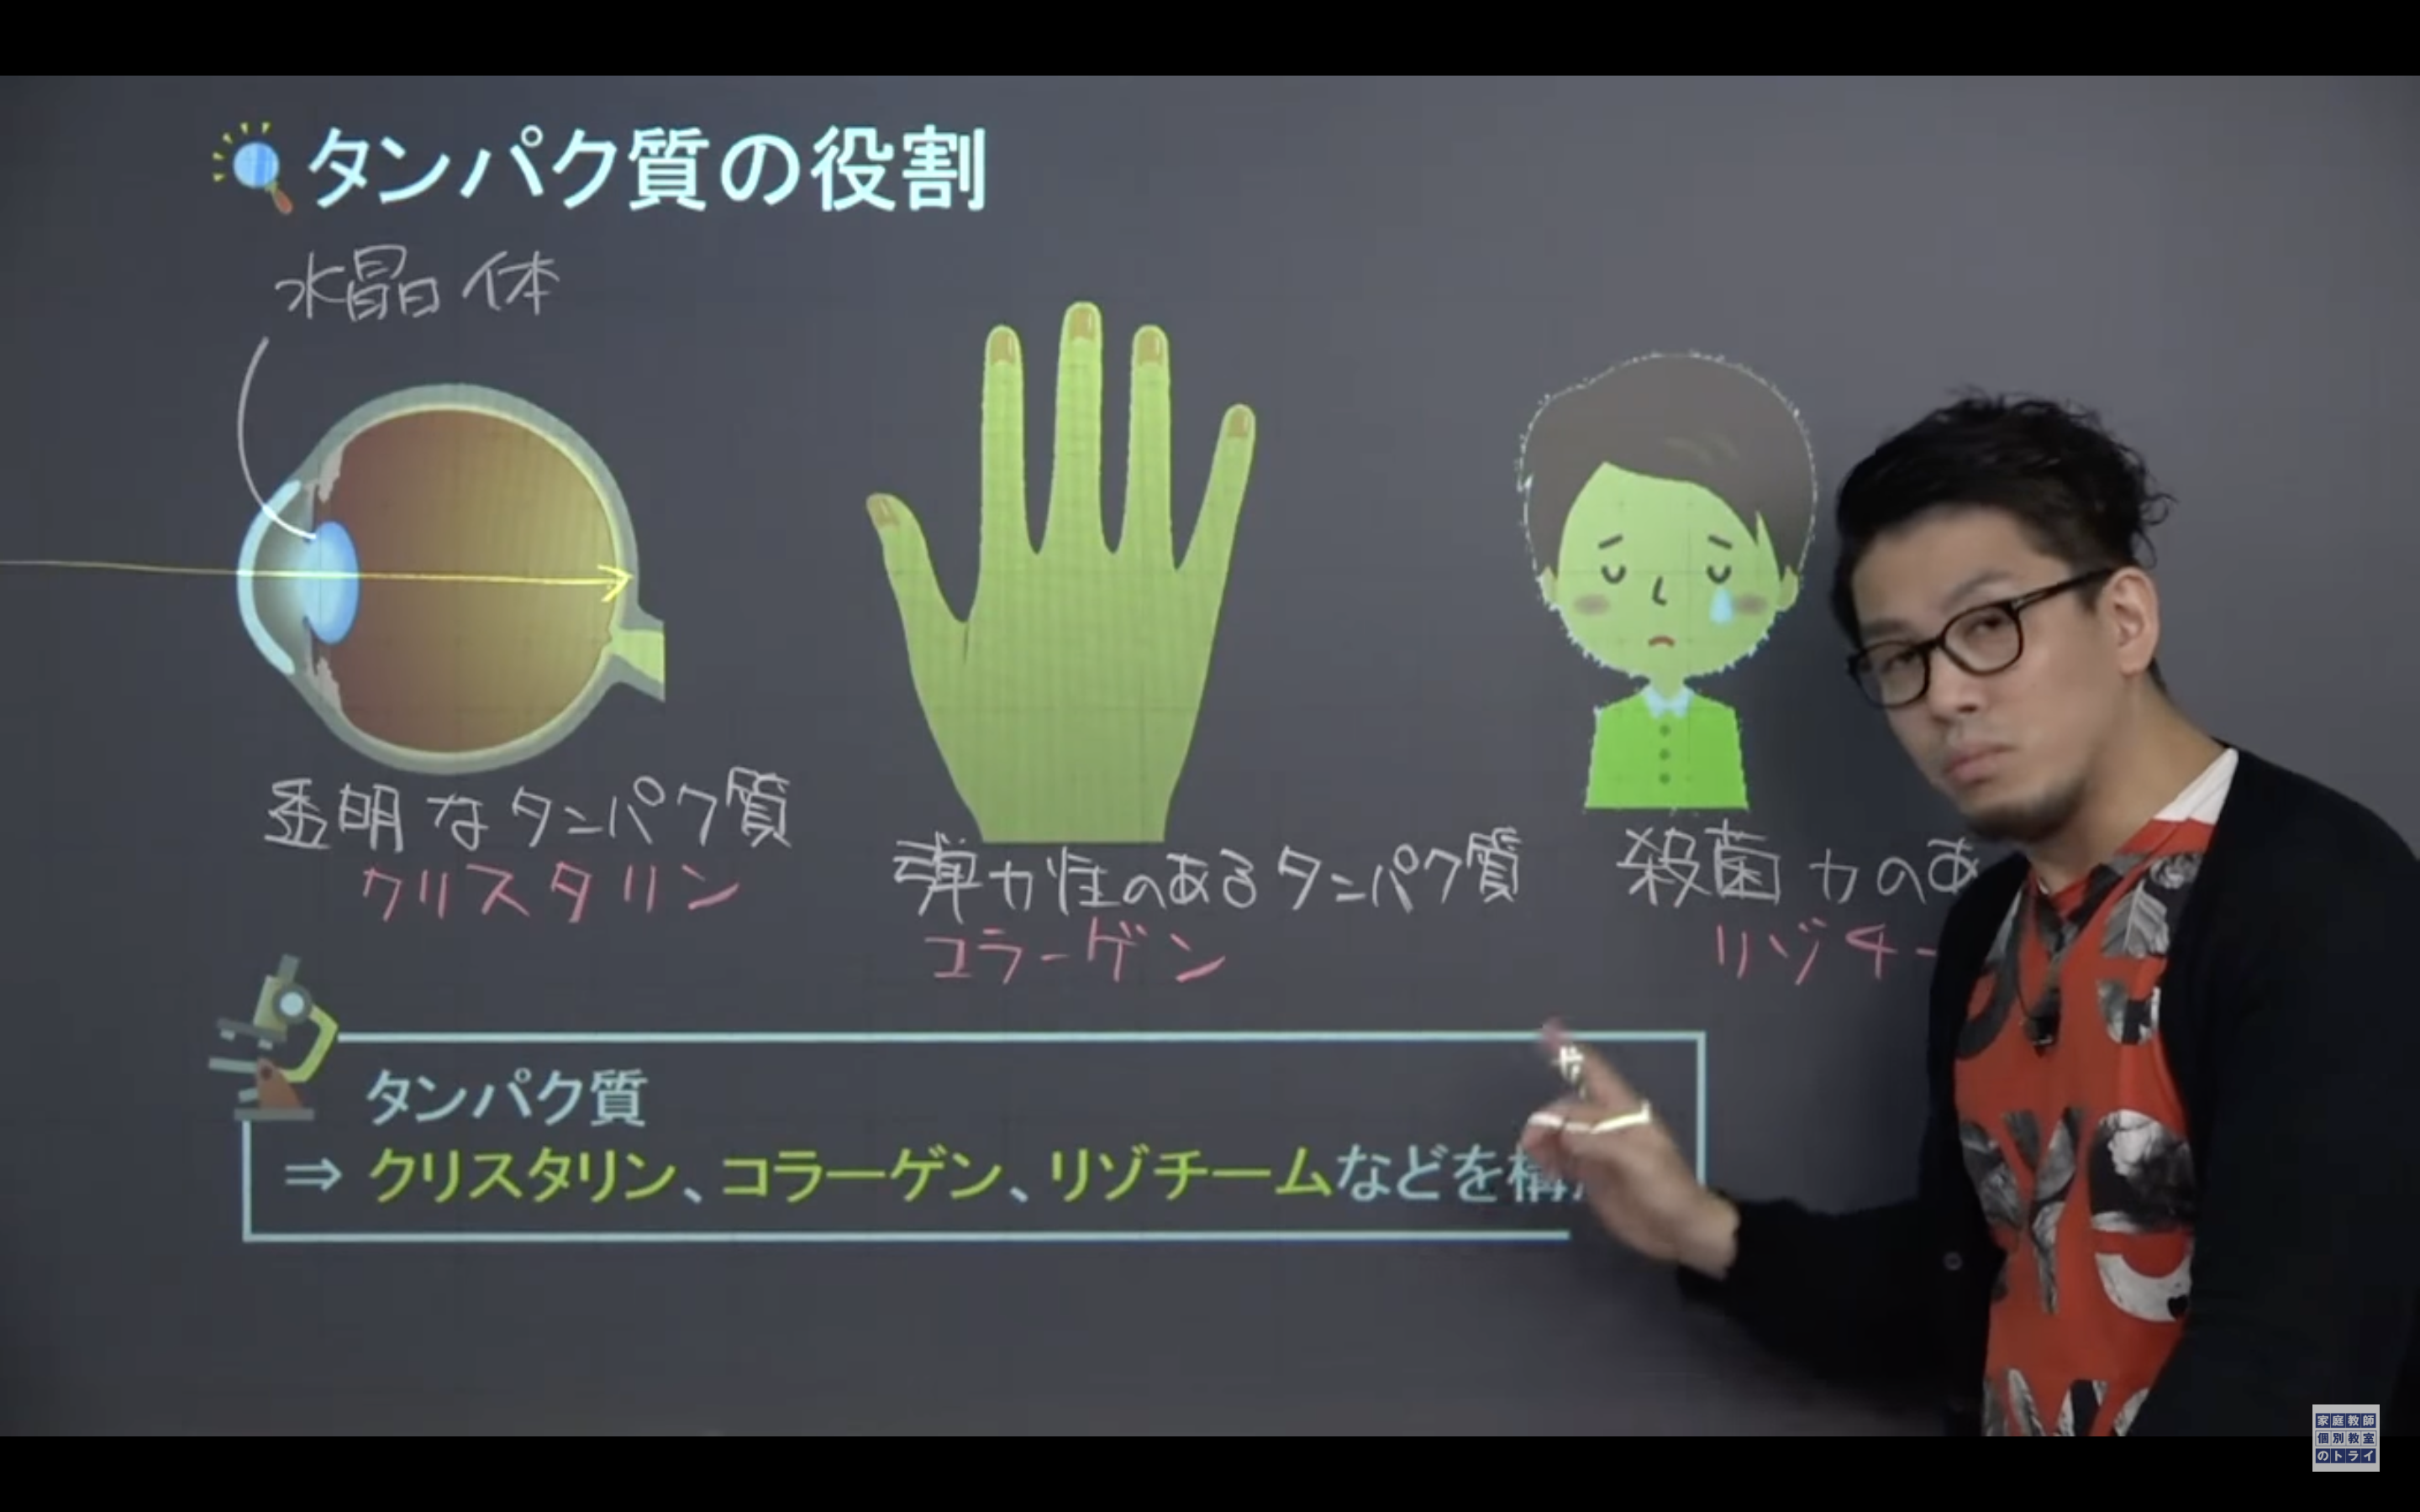 タンパク質の役割
水晶体
透明なタンパク質
クリスタリン
弾力性のあるタンパク質
コラーゲン
殺菌力のあ
リゾチー
タンパク質
⇒ クリスタリン、コラーゲン、リゾチームなどを構
家庭教師
個別教室
のトライ